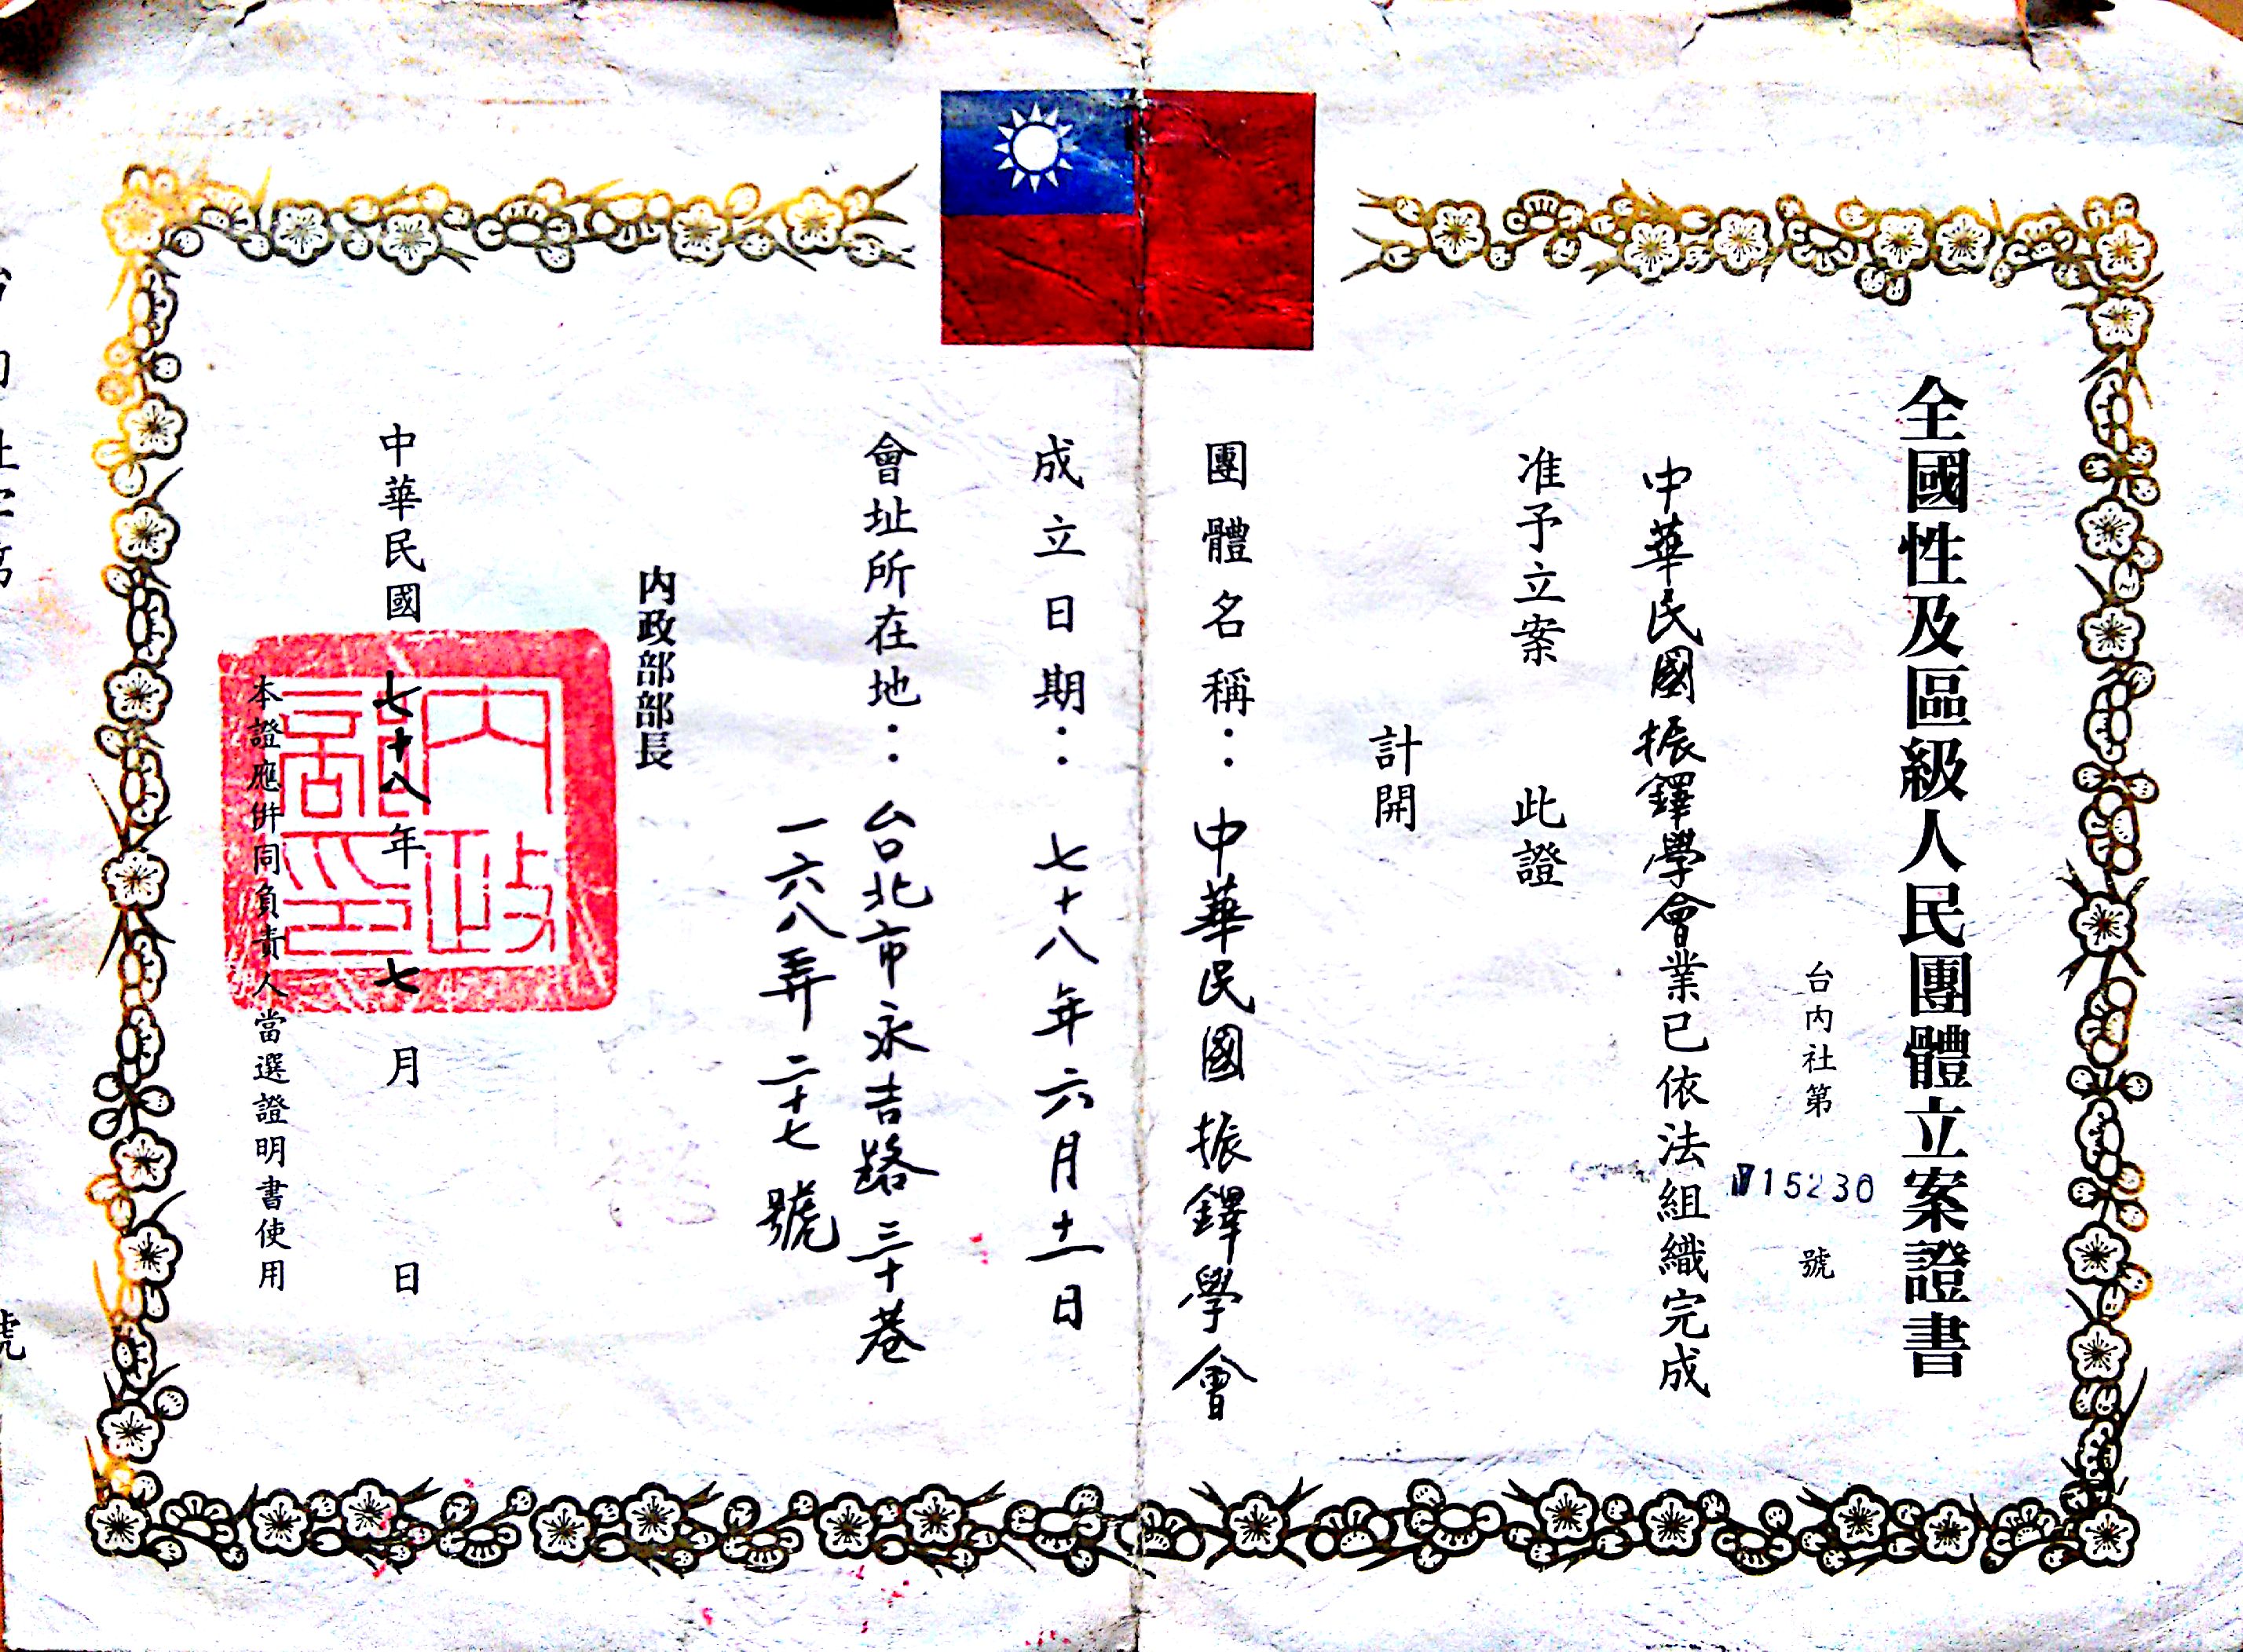 全國性及區級人民團體立案證書
台內社第 715230 號
中華民國振鐸學會業已依法組織完成
准予立案 此證
計開
團體名稱：中華民國振鐸學會
成立日期：七十八年六月十一日
會址所在地：台北市永吉路三十巷
一六八弄二十七號
內政部部長
中華民國七十八年七月 日
內政部印
本證應併同負責人當選證明書使用
號